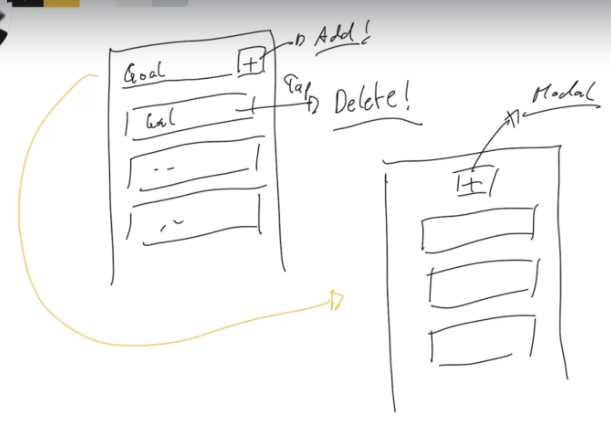 Goal + Add!
Goal Tap Delete!
Modal
+